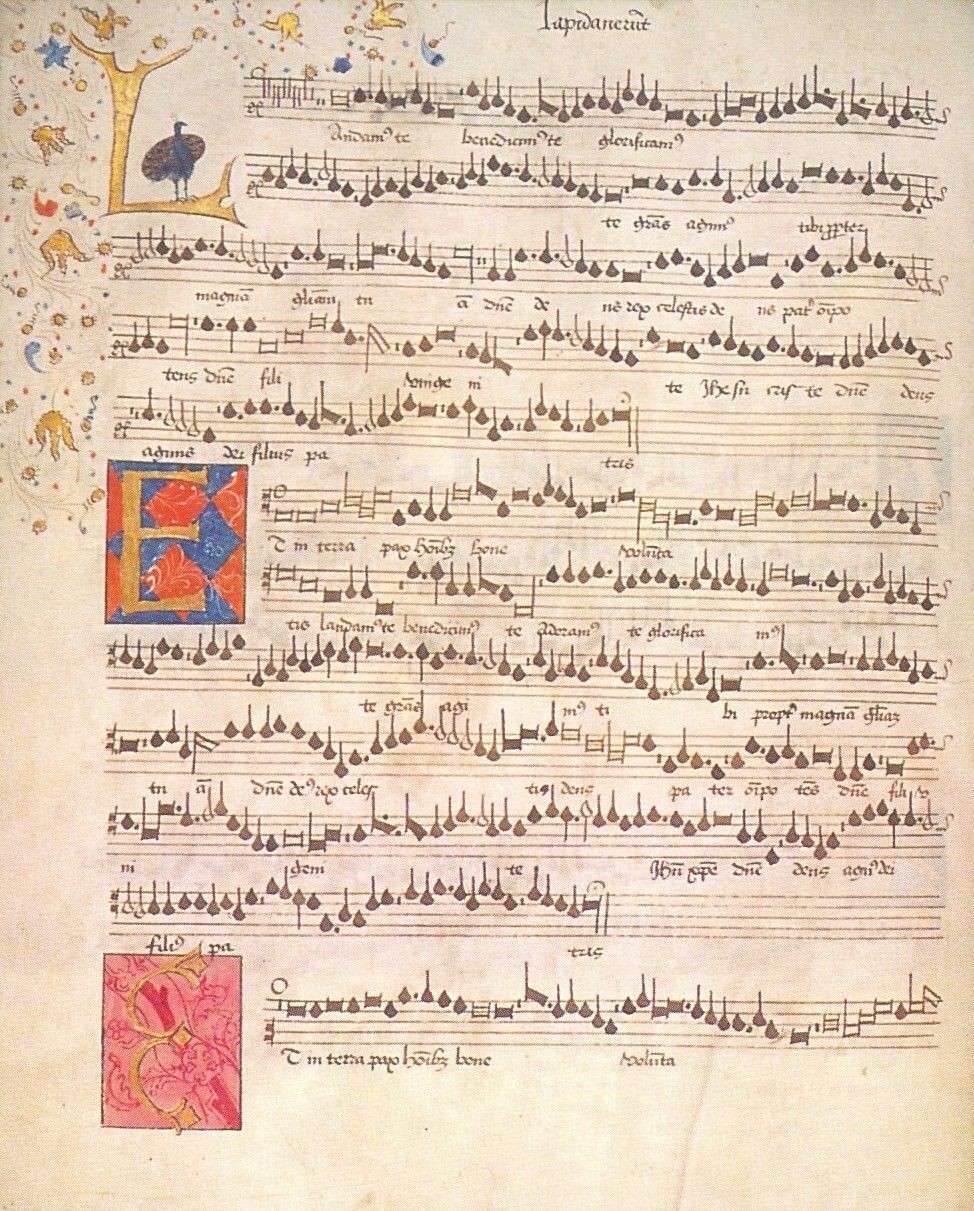 Lapidaverūt
Laudamꝰ te benedicimꝰ te glorificamꝰ
te grās agimꝰ tibi ꝓpter
magnā glīam tu ā dn̄e de us rex celestis de us pat̉ oīpo
tens dn̄e fili vnige ni te Jhesu cris te dn̄e deus
agnus dei filius pa tris
ET in terra pax hōībꝫ bone volūta
tis laudamꝰ te benedicimꝰ te Adoramꝰ te glorifica mꝰ
te grās agi mꝰ ti bi propt̉ magnā glīaꝫ
tu ā dn̄e deꝰ rex celes tis deus pa ter oīpo tēs dn̄e fili v
ni geni te Jhū xp̄e dn̄e deus agnꝰ dei
filiꝰ pa tris
ET in terra pax hōībꝫ bone volūta